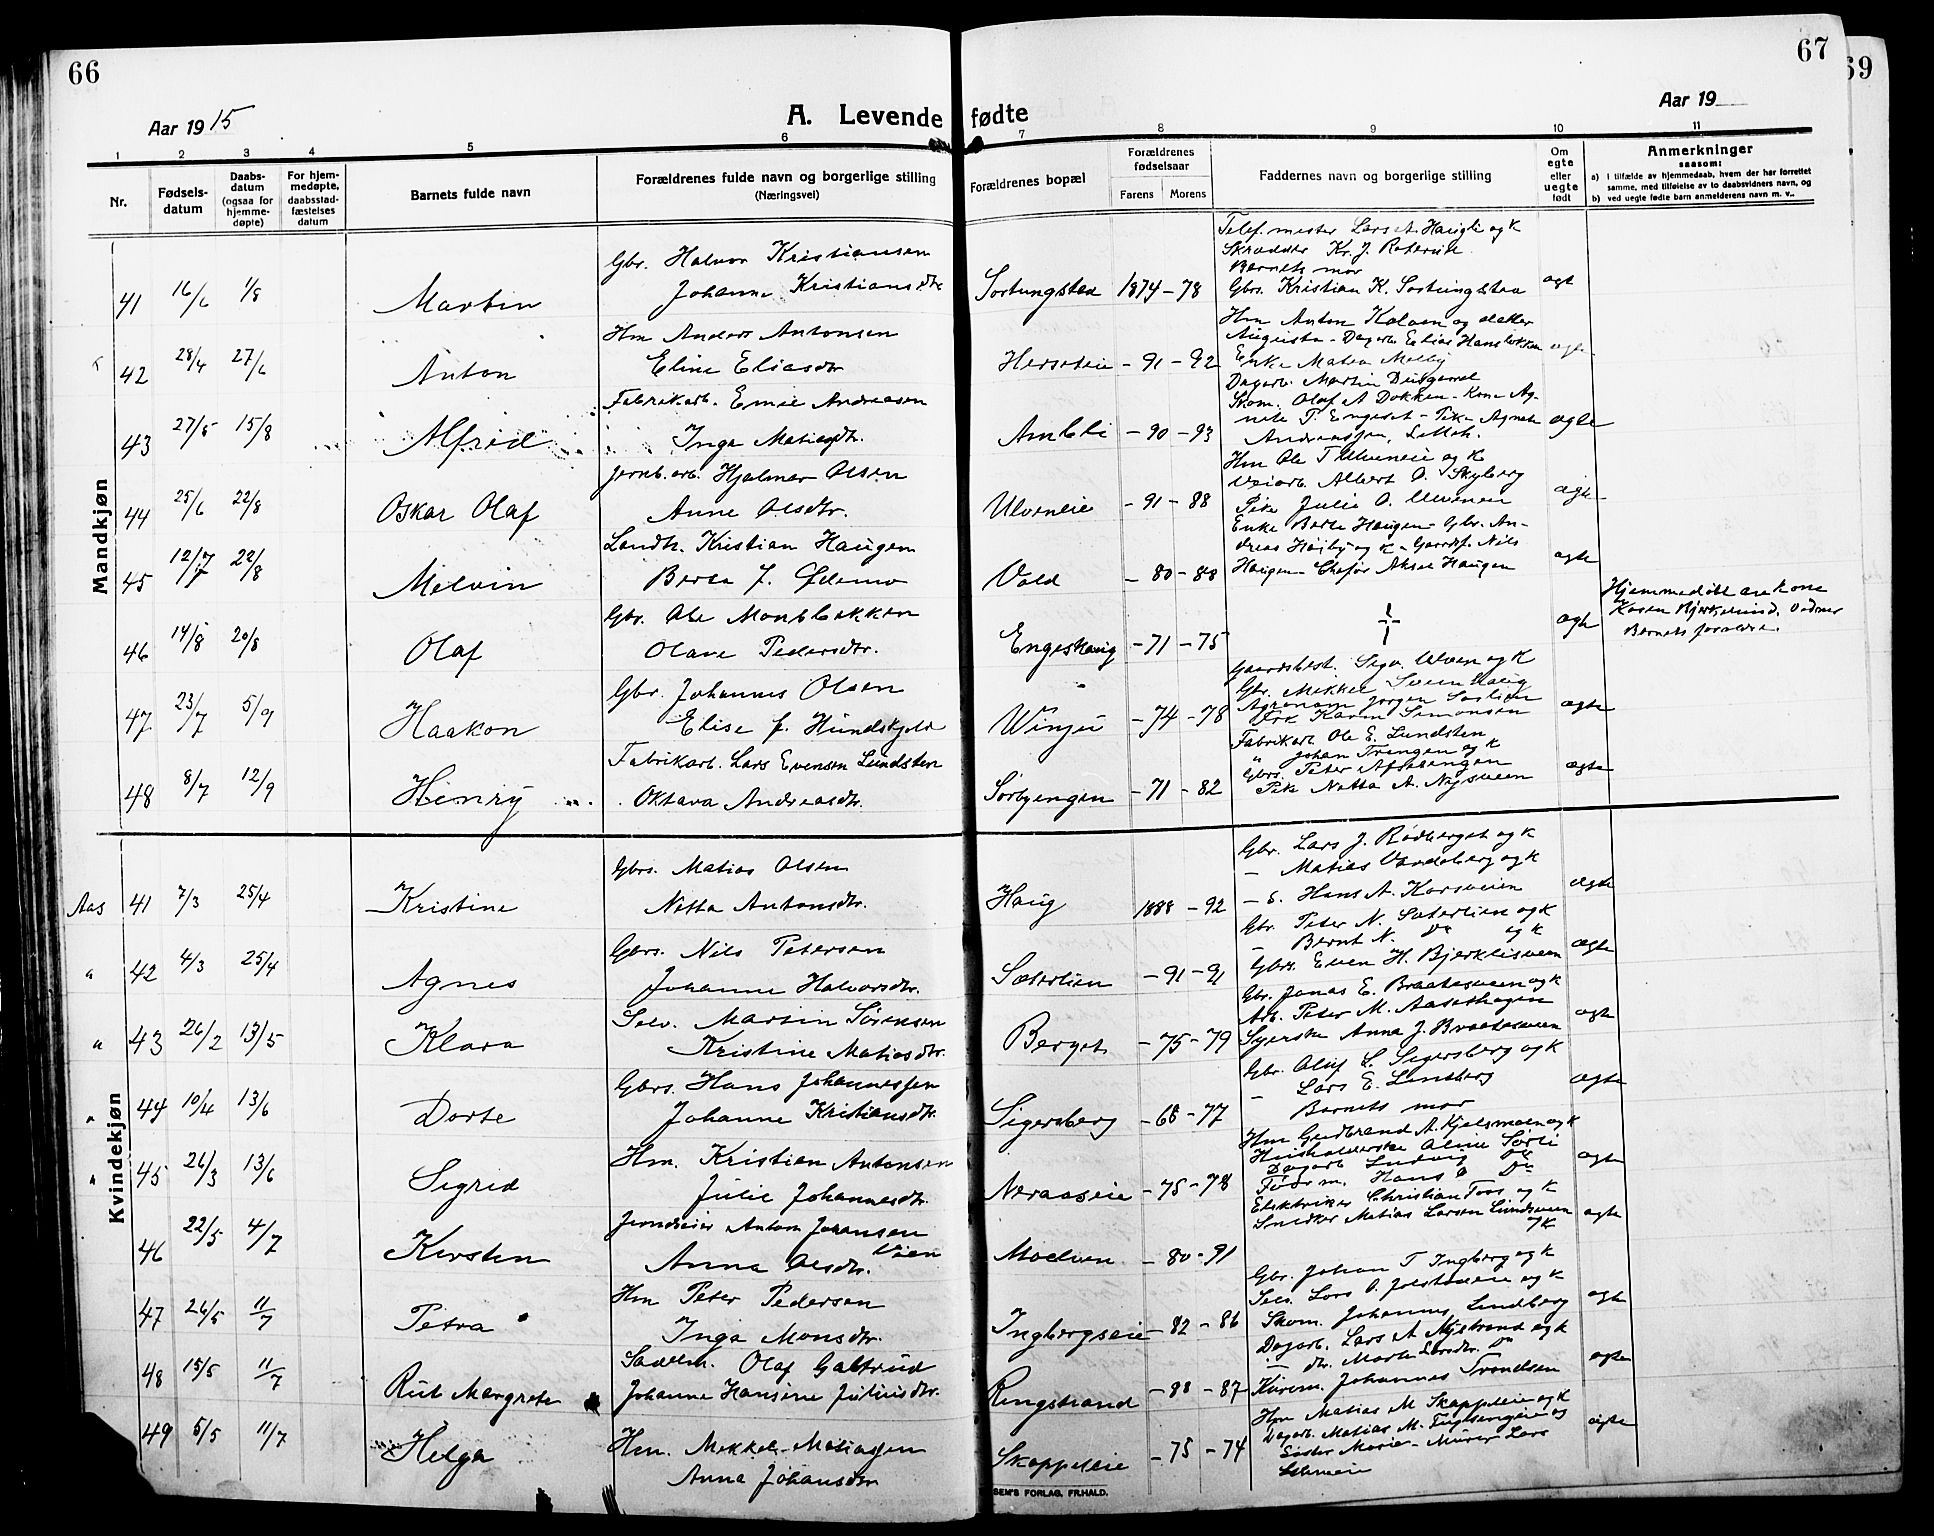 66
67
69
Aar 1915
A. Levende fødte
Aar 19
1 2 3 4 5 6 7 8 9 10 11
Nr.
Fødsels-
datum
Daabs-
datum
(ogsaa for
hjemme-
døpte)
For hjem-
medøpte,
daabsstad-
fæstelses
datum
Barnets fulde navn
Forældrenes fulde navn og borgerlige stilling
(Næringsvei)
Forældrenes bopæl
Forældrenes
fødselsaar
Farens Morens
Faddernes navn og borgerlige stilling
Om
egte
eller
uegte
født
Anmerkninger
saasom:
a) I tilfælde av hjemmedaab, hvem der har forrettet
samme, med tilføielse av to daabsvidners navn, og
b) ved uegte fødte barn anmelderens navn m. v..
Mandkjøn
Gbr. Halvor Kristiansen
41 16/6 1/8 Martin Johanne Kristiansdtr Sortungstad 1874 - 78 ægte
Telef.mester Lars A. Haugli og k
Skrædder Kr. J.
Barnets mor
Gbrs. Kristian K. Sortungstad
Hm Anders Antonsen
42 28/4 27/6 Anton Eline Eliasdtr - 91 - 92 ægte
Hm Anton Kolven og datter
Augusta - Dagarb. Elias Hansløkken
Enke Matea Melby
Dagarb. Martin
Fabrikarb. Emil Andreasen
43 27/5 15/8 Alfred Inga Matiasdtr. Ambli - 90 - 93 ægte
Skom. Olaf A Dokken - Kone Ag-
nete T. Engeset - Pike Agnete
Andreassen,
Jernb.arb. Hjalmar Olsen
44 25/6 22/8 Oskar Olaf Anne Olsdtr. Ulveneie - 91 - 88 ægte
Hm Ole T Ulveneie og k
Veiarb. Albert O. Skyberg
Pike Julie O. Ulveneie
Landh. Kristian Haugen
45 12/7 22/8 Melvin Berta J. Ødemo Vold - 80 - 88 ægte
Enke Berte Haugen - Gbr. An-
dreas Høiby og k - Gaardsf. Nils
Haugen - Chafør Aksel Haugen
Gbr. Ole
46 14/8 20/8 Olaf Olave Pedersdtr. Engeshaug - 71 - 75 ægte
Hjemmedøbt av kone
Karen Vidner
Barnets forældre.
Gbr. Johannes Olsen
47 23/7 5/9 Haakon Elise J. Hundskjold Winju - 74 - 78 ægte
Gaardsbest. Sigv. Ulven og k
Gbr. Mikkel Sveenhaug
Agronom Jørgen
Frk Karen Simonsen
Fabrikarb. Lars Evensen Lundsten
48 8/7 12/9 Henry Oktava Andreasdtr. Sørbyengen - 71 - 82 ægte
Fabrikarb. Ole E. Lundsten
" Johan Trengen og k
Gbrs. Peter
Pike Netta A. Nysveen
Kvindekjøn
Gbrs. Matias Olsen
Aas 41 7/3 25/4 Kristine Netta Antonsdtr. Haug 1888 - 92 ægte
Gbr. Lars J. Rødberget og k
- Matias Vardeberg og k
- s. Hans A. Korsveien
Gbrs. Nils Petersen
" 42 4/3 25/4 Agnes Johanne Halvorsdtr. Sæterlien - 91 - 91 ægte
Gbr. Peter N. Sæterlien og k
- Bernt N. Do og k
Gbrs. Even H. Bjerklisveen
Selv. Martin Sørensen
" 43 26/2 13/5 Klara Kristine Matiasdtr. Berget - 75 - 79 ægte
Gbr. Jonas E. Braatesveen og k
Arb. Peter M. Aasethagen
Syerske Anna J. Braatesveen
Gbrs. Hans Johannessen
" 44 10/4 13/6 Dorte Johanne Kristiansdtr. Sigersberg - 68 - 77 ægte
Gbr. Oluf L. Sigersberg og k
- Lars E. Lundberg
Barnets mor
Hm. Kristian Antonsen
" 45 26/3 13/6 Sigrid Julie Johannesdtr. Neraaseie - 75 - 78 ægte
Hm Gudbrand A. Kjelsmoen og k
Husholderske Aline Sørli
Dagarb. Ludvig Do
Føderm. Hans O Do
Jerndreier Anton Johansen
46 22/5 4/7 Kirsten Anna Olsdtr. Moelven - 80 - 91 ægte
Elektriker Christian Foss og k
Snedker Matias Larsen Lundsveen
og k
Hm Peter Pedersen
47 26/5 11/7 Petra Inga Monsdtr. Ingbergseie - 82 - 86 ægte
Gbr. Johan T Ingberg og k
Selv. Lars O. og k
Skom. Johannes Lundberg
Sadelm. Olaf Galtrud
48 15/5 11/7 Rut Margrete Johanne Hansine Juliusdtr. Ringstrand - 88 - 87 ægte
Dagarb. Lars A Nystrand og k
- dtr. Marte Larsdtr. Do
Kørem. Johannes Svendsen
Hm. Mikkel Matiassen
49 5/5 11/7 Helga Anna Johansdtr Skappeleie - 75 - 74 ægte
Hm Matias M Skappeleie og k
Dagarb. Matias M. og
Søster Marie - Murer Lars
SEM'S FORLAG, FR.HALD.